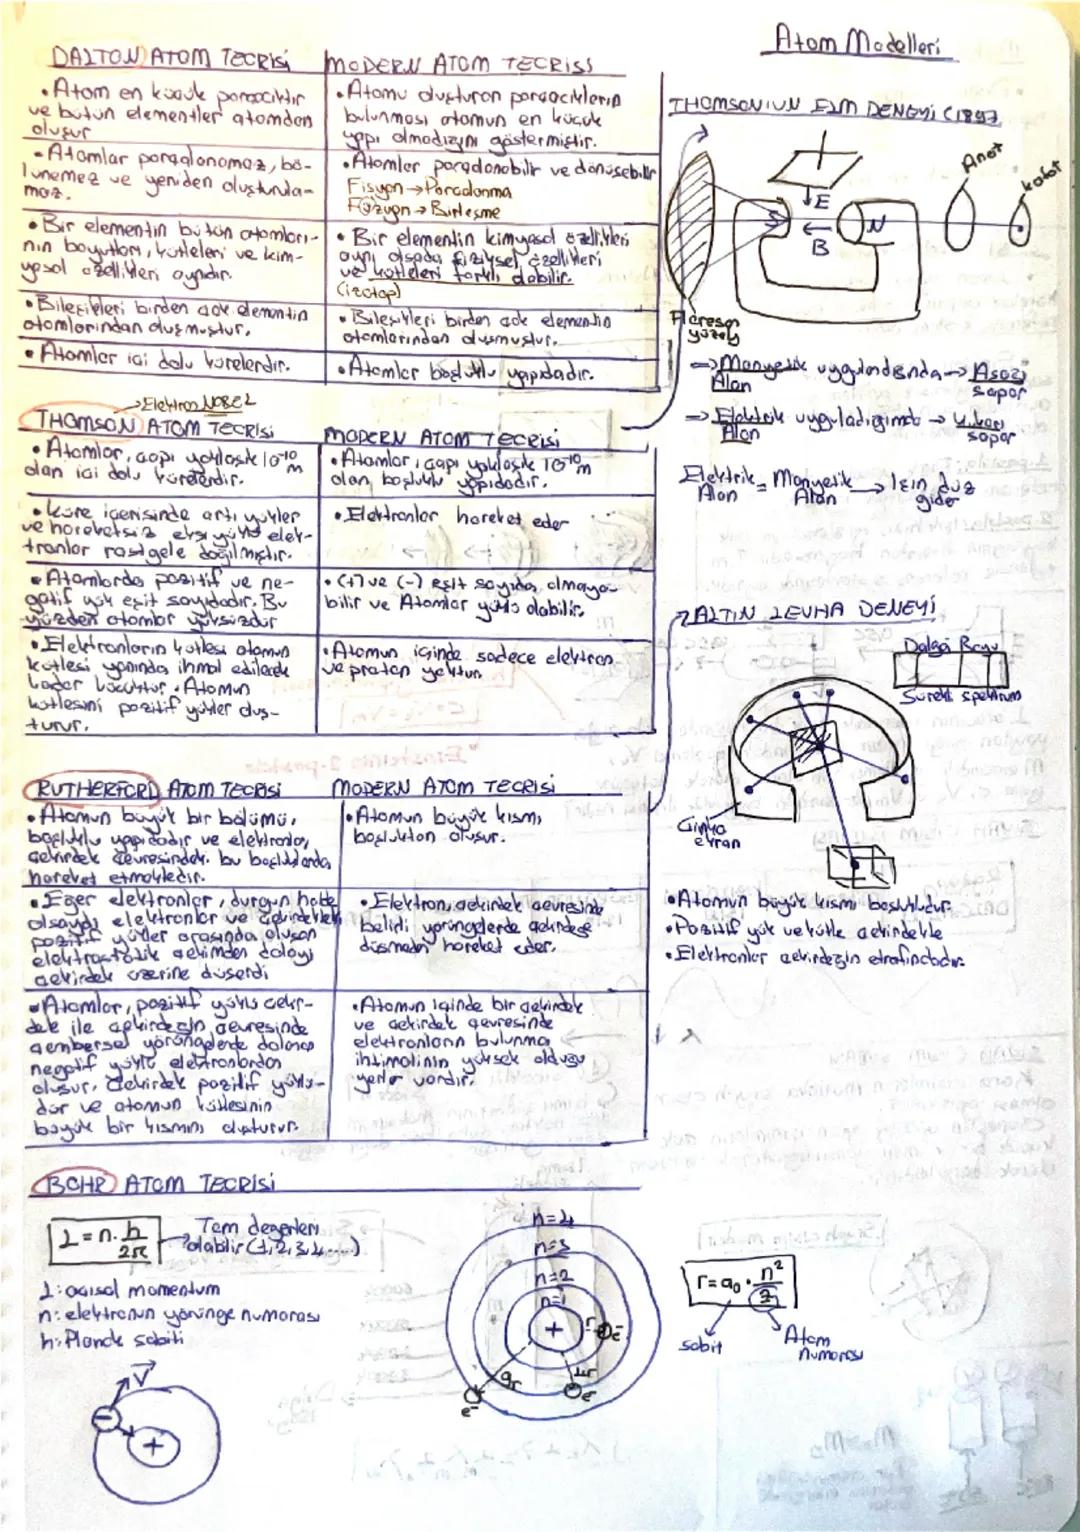 Atom Modelleri
DALTON ATOM TEORİSİ
MODERN ATOM TEORİSİ
• Atom en küçük parçacıktır
ve bütün elementler atomdan
oluşur
• Atomu oluşturan parçacıkların
bulunması atomun en küçük
yapı olmadığını göstermiştir.
• Atomlar parçalanamaz, bö-
lünemez ve yeniden oluşturula-
maz.
• Atomlar parçalanabilir ve dönüşebilir
Fisyon → Parçalanma
Füzyon → Birleşme
• Bir elementin bütün atomları-
nın boyutları, kütleleri ve kim-
yasal özellikleri aynıdır.
• Bir elementin kimyasal özellikleri
aynı olsada fiziksel özellikleri
ve kütleleri farklı olabilir.
(izotop)
• Bileşikleri birden çok elementin
atomlarından oluşmuştur.
• Bileşikleri birden çok elementin
atomlarından oluşmuştur.
• Atomlar içi dolu kürelerdir.
• Atomlar boşluklu yapıdadır.
→ Elektron NOBEL
THOMSON ATOM TEORİSİ
MODERN ATOM TEORİSİ
• Atomlar, çapı yaklaşık 10⁻¹⁰ m
olan içi dolu kürelerdir.
• Atomlar, çapı yaklaşık 10⁻¹⁰ m
olan, boşluklu yapıdadır.
• Küre içerisinde artı yükler
ve hareketsiz eksi yüklü elek-
tronlar rastgele dağılmıştır.
• Elektronlar hareket eder
• Atomlarda pozitif ve ne-
gatif yük eşit sayıdadır. Bu
yüzden atomlar yüksüzdür
• (+) ve (-) eşit sayıda olmaya-
bilir ve Atomlar yüklü olabilir.
• Elektronların kütlesi atomun
kütlesi yanında ihmal edilecek
kadar küçüktür. Atomun
kütlesini pozitif yükler oluş-
turur.
• Atomun içinde sadece elektron
ve proton yoktur.
RUTHERFORD ATOM TEORİSİ
MODERN ATOM TEORİSİ
• Atomun büyük bir bölümü,
boşluklu yapıdadır ve elektronlar,
çekirdek çevresindeki bu boşluklarda
hareket etmektedir.
• Atomun büyük kısmı
boşluktan oluşur.
• Eğer elektronlar, durgun halde
olsaydı elektronlar ve çekirdekteki
pozitif yükler arasında oluşan
elektrostatik çekimden dolayı
çekirdek üzerine düşerdi
• Elektron, çekirdek çevresinde
belirli yörüngelerde çekirdeğe
düşmeden hareket eder.
• Atomlar, pozitif yüklü çekir-
dek ile çekirdeğin çevresinde
çembersel yörüngelerde dolanan
negatif yüklü elektronlardan
oluşur. Çekirdek pozitif yüklü-
dür ve atomun kütlesinin
büyük bir kısmını oluşturur.
• Atomun içinde bir çekirdek
ve çekirdek çevresinde
elektronların bulunma
ihtimalinin yüksek olduğu
yerler vardır.
BOHR ATOM TEORİSİ
L = n. h/2π
Tam değerleri
olabilir (1,2,3,4....)
L: açısal momentum
n: elektronun yörünge numarası
h: Planck sabiti
V
-
+
n=4
n=3
n=2
n=1
+
r
e⁻
4r
e⁻
9r
e⁻
r = a₀ . n²/Z
sabit
Atom
numarası
THOMSON'UN E/M DENEYİ (1897
Anot
katot
E
S
N
B
Floresan
yüzey
→ Manyetik uygulandığında → Aşağı
Alan
sapar
→ Elektrik uyguladığımda → Yukarı
Alan
sapar
Elektrik = Manyetik → Işın düz
Alan Alan gider
ALTIN LEVHA DENEYİ
Dalga Boyu
Sürekli spektrum
Çinko
ekran
• Atomun büyük kısmı boşluktur.
• Pozitif yük ve kütle çekirdekte
• Elektronlar çekirdeğin etrafındadır.